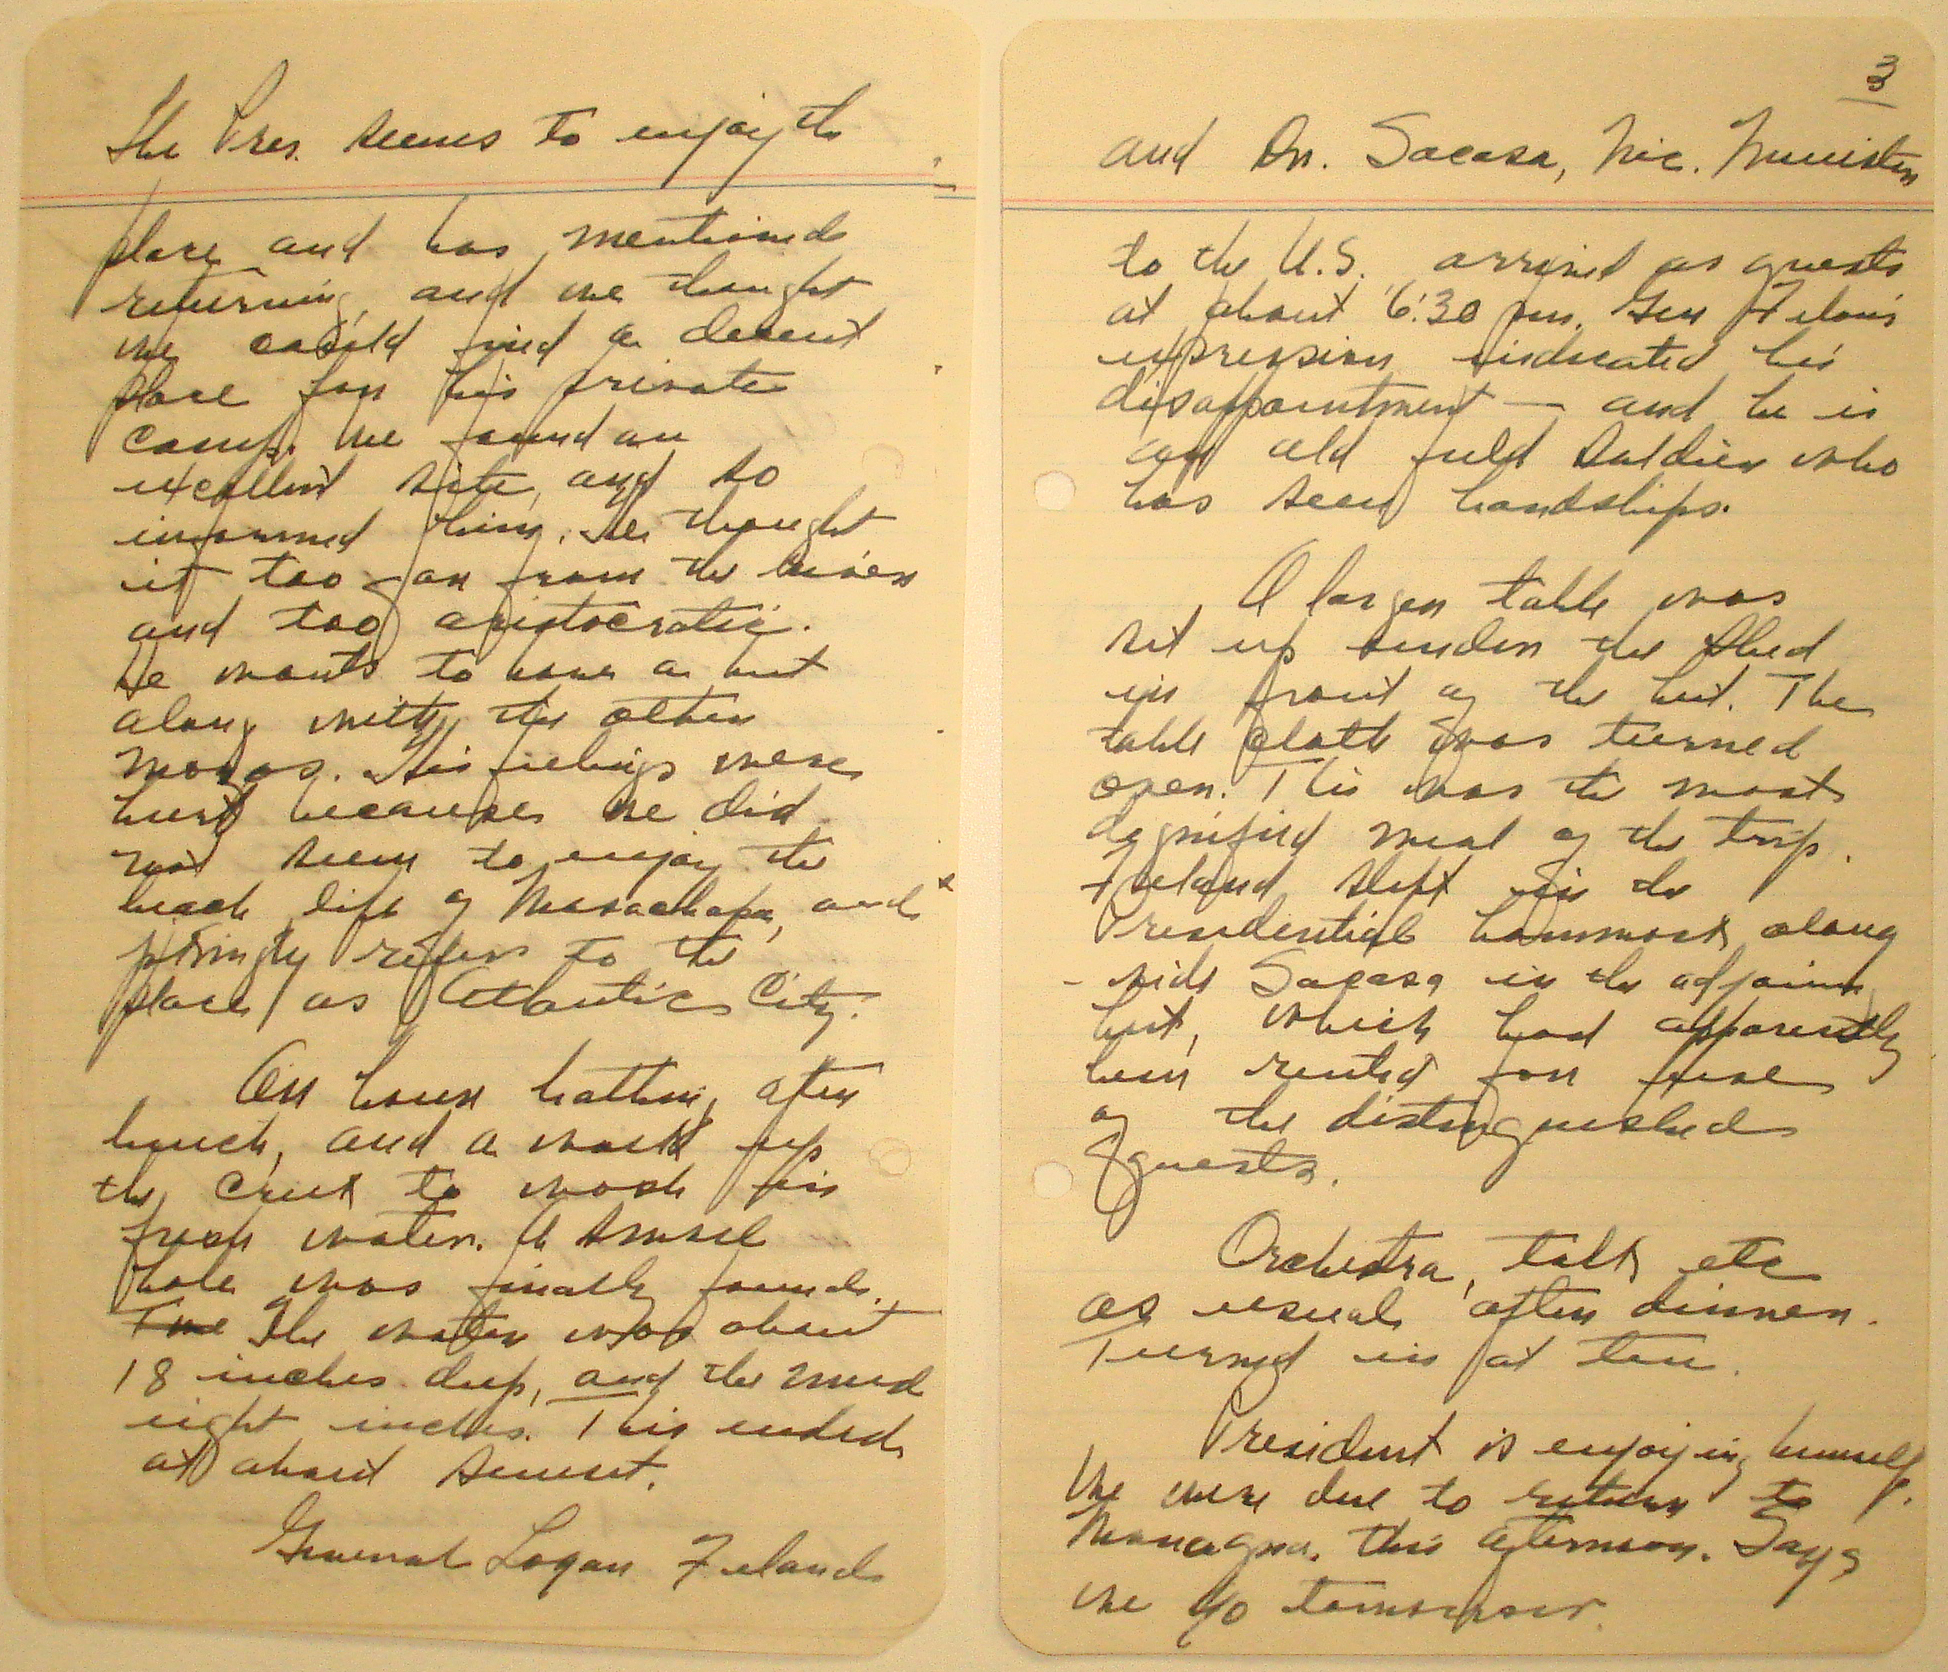 The Pres. seems to enjoy the
place and has mentioned
returning, and we thought
we could find a decent
place for his private
camp. We found an
excellent site, and so
informed him. He thought
it too far from the river
and too aristocratic.
He wants to have a hut
along with the other
mozos. His feelings were
hurt because we did
not seem to enjoy the
beach life of Masachapa, and
jokingly refers to the
place as Atlantic City.
An hour bathing after
lunch, and a walk up
the creek to wash in
fresh water. A small
hole was finally found.
The The water was about
18 inches deep, and the mud
eight inches. This ended
at about sunset.
General Logan Feland
3
and Dr. Sacasa, Nic. Minister
to the U.S. arrived as guests
at about 6:30 pm. Gen Feland's
expression indicated his
disappointment — and he is
an old field soldier who
has seen hardships.
A larger table was
set up under the shed
in front of the hut. The
table cloth was turned
open. This was the most
dignified meal of the trip.
Feland slept in the
Presidential hammock along
- side Sacasa in the adjoining
hut, which had apparently
been rented for use
of the distinguished
guests.
Orchestra, talk etc
as usual after dinner.
Turned in at ten.
President is enjoying himself.
We were due to return to
Managua this afternoon. Says
we go tomorrow.